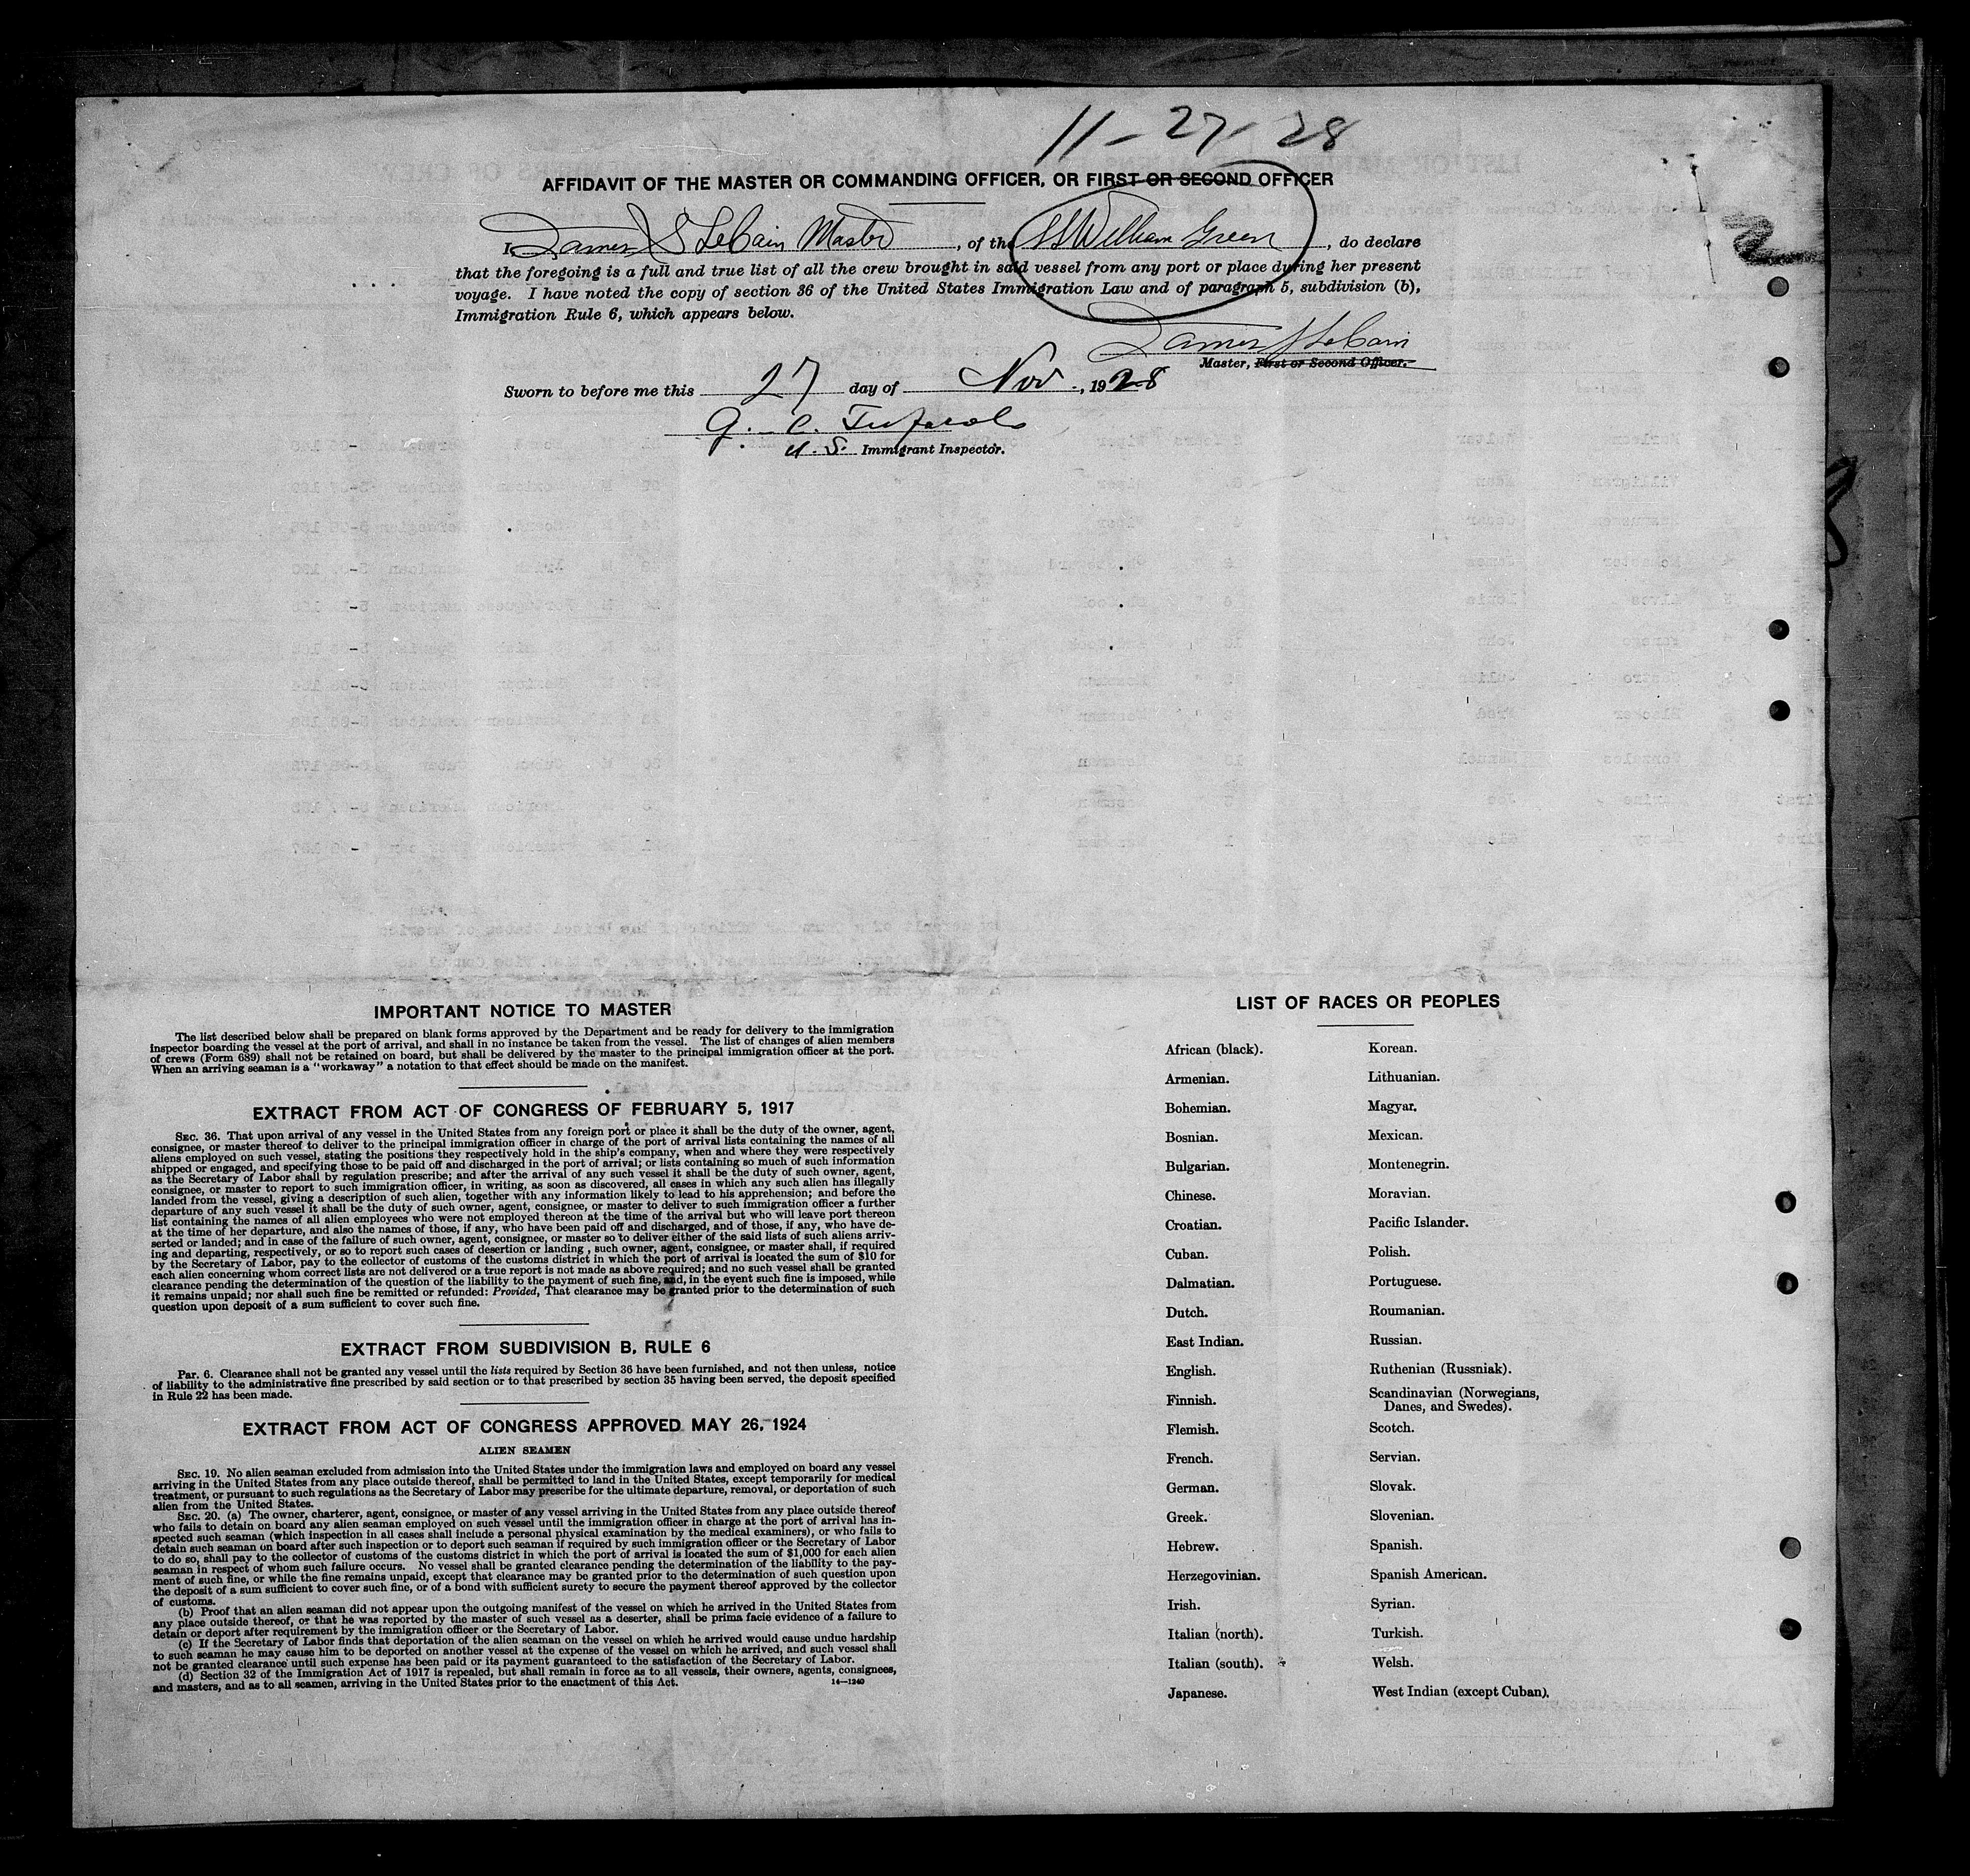 11-27-28
AFFIDAVIT OF THE MASTER OR COMMANDING OFFICER, OR FIRST OR SECOND OFFICER
I, James S LeCain Master, of the SS William Green, do declare
that the foregoing is a full and true list of all the crew brought in said vessel from any port or place during her present
voyage. I have noted the copy of section 36 of the United States Immigration Law and of paragraph 5, subdivision (b),
Immigration Rule 6, which appears below.
James S LeCain
Master, First or Second Officer.
Sworn to before me this 27 day of Nov., 1928
U. S. Immigrant Inspector.
IMPORTANT NOTICE TO MASTER
The list described below shall be prepared on blank forms approved by the Department and be ready for delivery to the immigration
inspector boarding the vessel at the port of arrival, and shall in no instance be taken from the vessel. The list of changes of alien members
of crews (Form 689) shall not be retained on board, but shall be delivered by the master to the principal immigration officer at the port.
When an arriving seaman is a "workaway" a notation to that effect should be made on the manifest.
EXTRACT FROM ACT OF CONGRESS OF FEBRUARY 5, 1917
SEC. 36. That upon arrival of any vessel in the United States from any foreign port or place it shall be the duty of the owner, agent,
consignee, or master thereof to deliver to the principal immigration officer in charge of the port of arrival lists containing the names of all
aliens employed on such vessel, stating the positions they respectively hold in the ship's company, when and where they were respectively
shipped or engaged, and specifying those to be paid off and discharged in the port of arrival; or lists containing so much of such information
as the Secretary of Labor shall by regulation prescribe; and after the arrival of any such vessel it shall be the duty of such owner, agent,
consignee, or master to report to such immigration officer, in writing, as soon as discovered, all cases in which any such alien has illegally
landed from the vessel, giving a description of such alien, together with any information likely to lead to his apprehension; and before the
departure of any such vessel it shall be the duty of such owner, agent, consignee, or master to deliver to such immigration officer a further
list containing the names of all alien employees who were not employed thereon at the time of the arrival but who will leave port thereon
at the time of her departure, and also the names of those, if any, who have been paid off and discharged, and of those, if any, who have de-
serted or landed; and in case of the failure of such owner, agent, consignee, or master so to deliver either of the said lists of such aliens arriv-
ing and departing, respectively, or so to report such cases of desertion or landing , such owner, agent, consignee, or master shall, if required
by the Secretary of Labor, pay to the collector of customs of the customs district in which the port of arrival is located the sum of $10 for
each alien concerning whom correct lists are not delivered or a true report is not made as above required; and no such vessel shall be granted
clearance pending the determination of the question of the liability to the payment of such fine, and, in the event such fine is imposed, while
it remains unpaid; nor shall such fine be remitted or refunded: Provided, That clearance may be granted prior to the determination of such
question upon deposit of a sum sufficient to cover such fine.
EXTRACT FROM SUBDIVISION B, RULE 6
Par. 6. Clearance shall not be granted any vessel until the lists required by Section 36 have been furnished, and not then unless, notice
of liability to the administrative fine prescribed by said section or to that prescribed by section 35 having been served, the deposit specified
in Rule 22 has been made.
EXTRACT FROM ACT OF CONGRESS APPROVED MAY 26, 1924
ALIEN SEAMEN
SEC. 19. No alien seaman excluded from admission into the United States under the immigration laws and employed on board any vessel
arriving in the United States from any place outside thereof, shall be permitted to land in the United States, except temporarily for medical
treatment, or pursuant to such regulations as the Secretary of Labor may prescribe for the ultimate departure, removal, or deportation of such
alien from the United States.
SEC. 20. (a) The owner, charterer, agent, consignee, or master of any vessel arriving in the United States from any place outside thereof
who fails to detain on board any alien seaman employed on such vessel until the immigration officer in charge at the port of arrival has in-
spected such seaman (which inspection in all cases shall include a personal physical examination by the medical examiners), or who fails to
detain such seaman on board after such inspection or to deport such seaman if required by such immigration officer or the Secretary of Labor
to do so, shall pay to the collector of customs of the customs district in which the port of arrival is located the sum of $1,000 for each alien
seaman in respect of whom such failure occurs. No vessel shall be granted clearance pending the determination of the liability to the pay-
ment of such fine, or while the fine remains unpaid, except that clearance may be granted prior to the determination of such question upon
the deposit of a sum sufficient to cover such fine, or of a bond with sufficient surety to secure the payment thereof approved by the collector
of customs.
(b) Proof that an alien seaman did not appear upon the outgoing manifest of the vessel on which he arrived in the United States from
any place outside thereof, or that he was reported by the master of such vessel as a deserter, shall be prima facie evidence of a failure to
detain or deport after requirement by the immigration officer or the Secretary of Labor.
(c) If the Secretary of Labor finds that deportation of the alien seaman on the vessel on which he arrived would cause undue hardship
to such seaman he may cause him to be deported on another vessel at the expense of the vessel on which he arrived, and such vessel shall
not be granted clearance until such expense has been paid or its payment guaranteed to the satisfaction of the Secretary of Labor.
(d) Section 32 of the Immigration Act of 1917 is repealed, but shall remain in force as to all vessels, their owners, agents, consignees,
and masters, and as to all seamen, arriving in the United States prior to the enactment of this Act.
14—1240
LIST OF RACES OR PEOPLES
African (black).
Armenian.
Bohemian.
Bosnian.
Bulgarian.
Chinese.
Croatian.
Cuban.
Dalmatian.
Dutch.
East Indian.
English.
Finnish.
Flemish.
French.
German.
Greek.
Hebrew.
Herzegovinian.
Irish.
Italian (north).
Italian (south).
Japanese.
Korean.
Lithuanian.
Magyar.
Mexican.
Montenegrin.
Moravian.
Pacific Islander.
Polish.
Portuguese.
Roumanian.
Russian.
Ruthenian (Russniak).
Scandinavian (Norwegians,
Danes, and Swedes).
Scotch.
Servian.
Slovak.
Slovenian.
Spanish.
Spanish American.
Syrian.
Turkish.
Welsh.
West Indian (except Cuban).